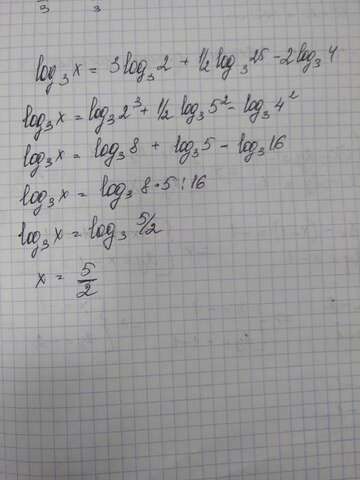 3 3
log₃x = 3log₃2 + 1/2 log₃25 - 2log₃4
log₃x = log₃2³ + 1/2 log₃5² - log₃4²
log₃x = log₃8 + log₃5 - log₃16
log₃x = log₃8·5:16
log₃x = log₃5/2
x = 5/2